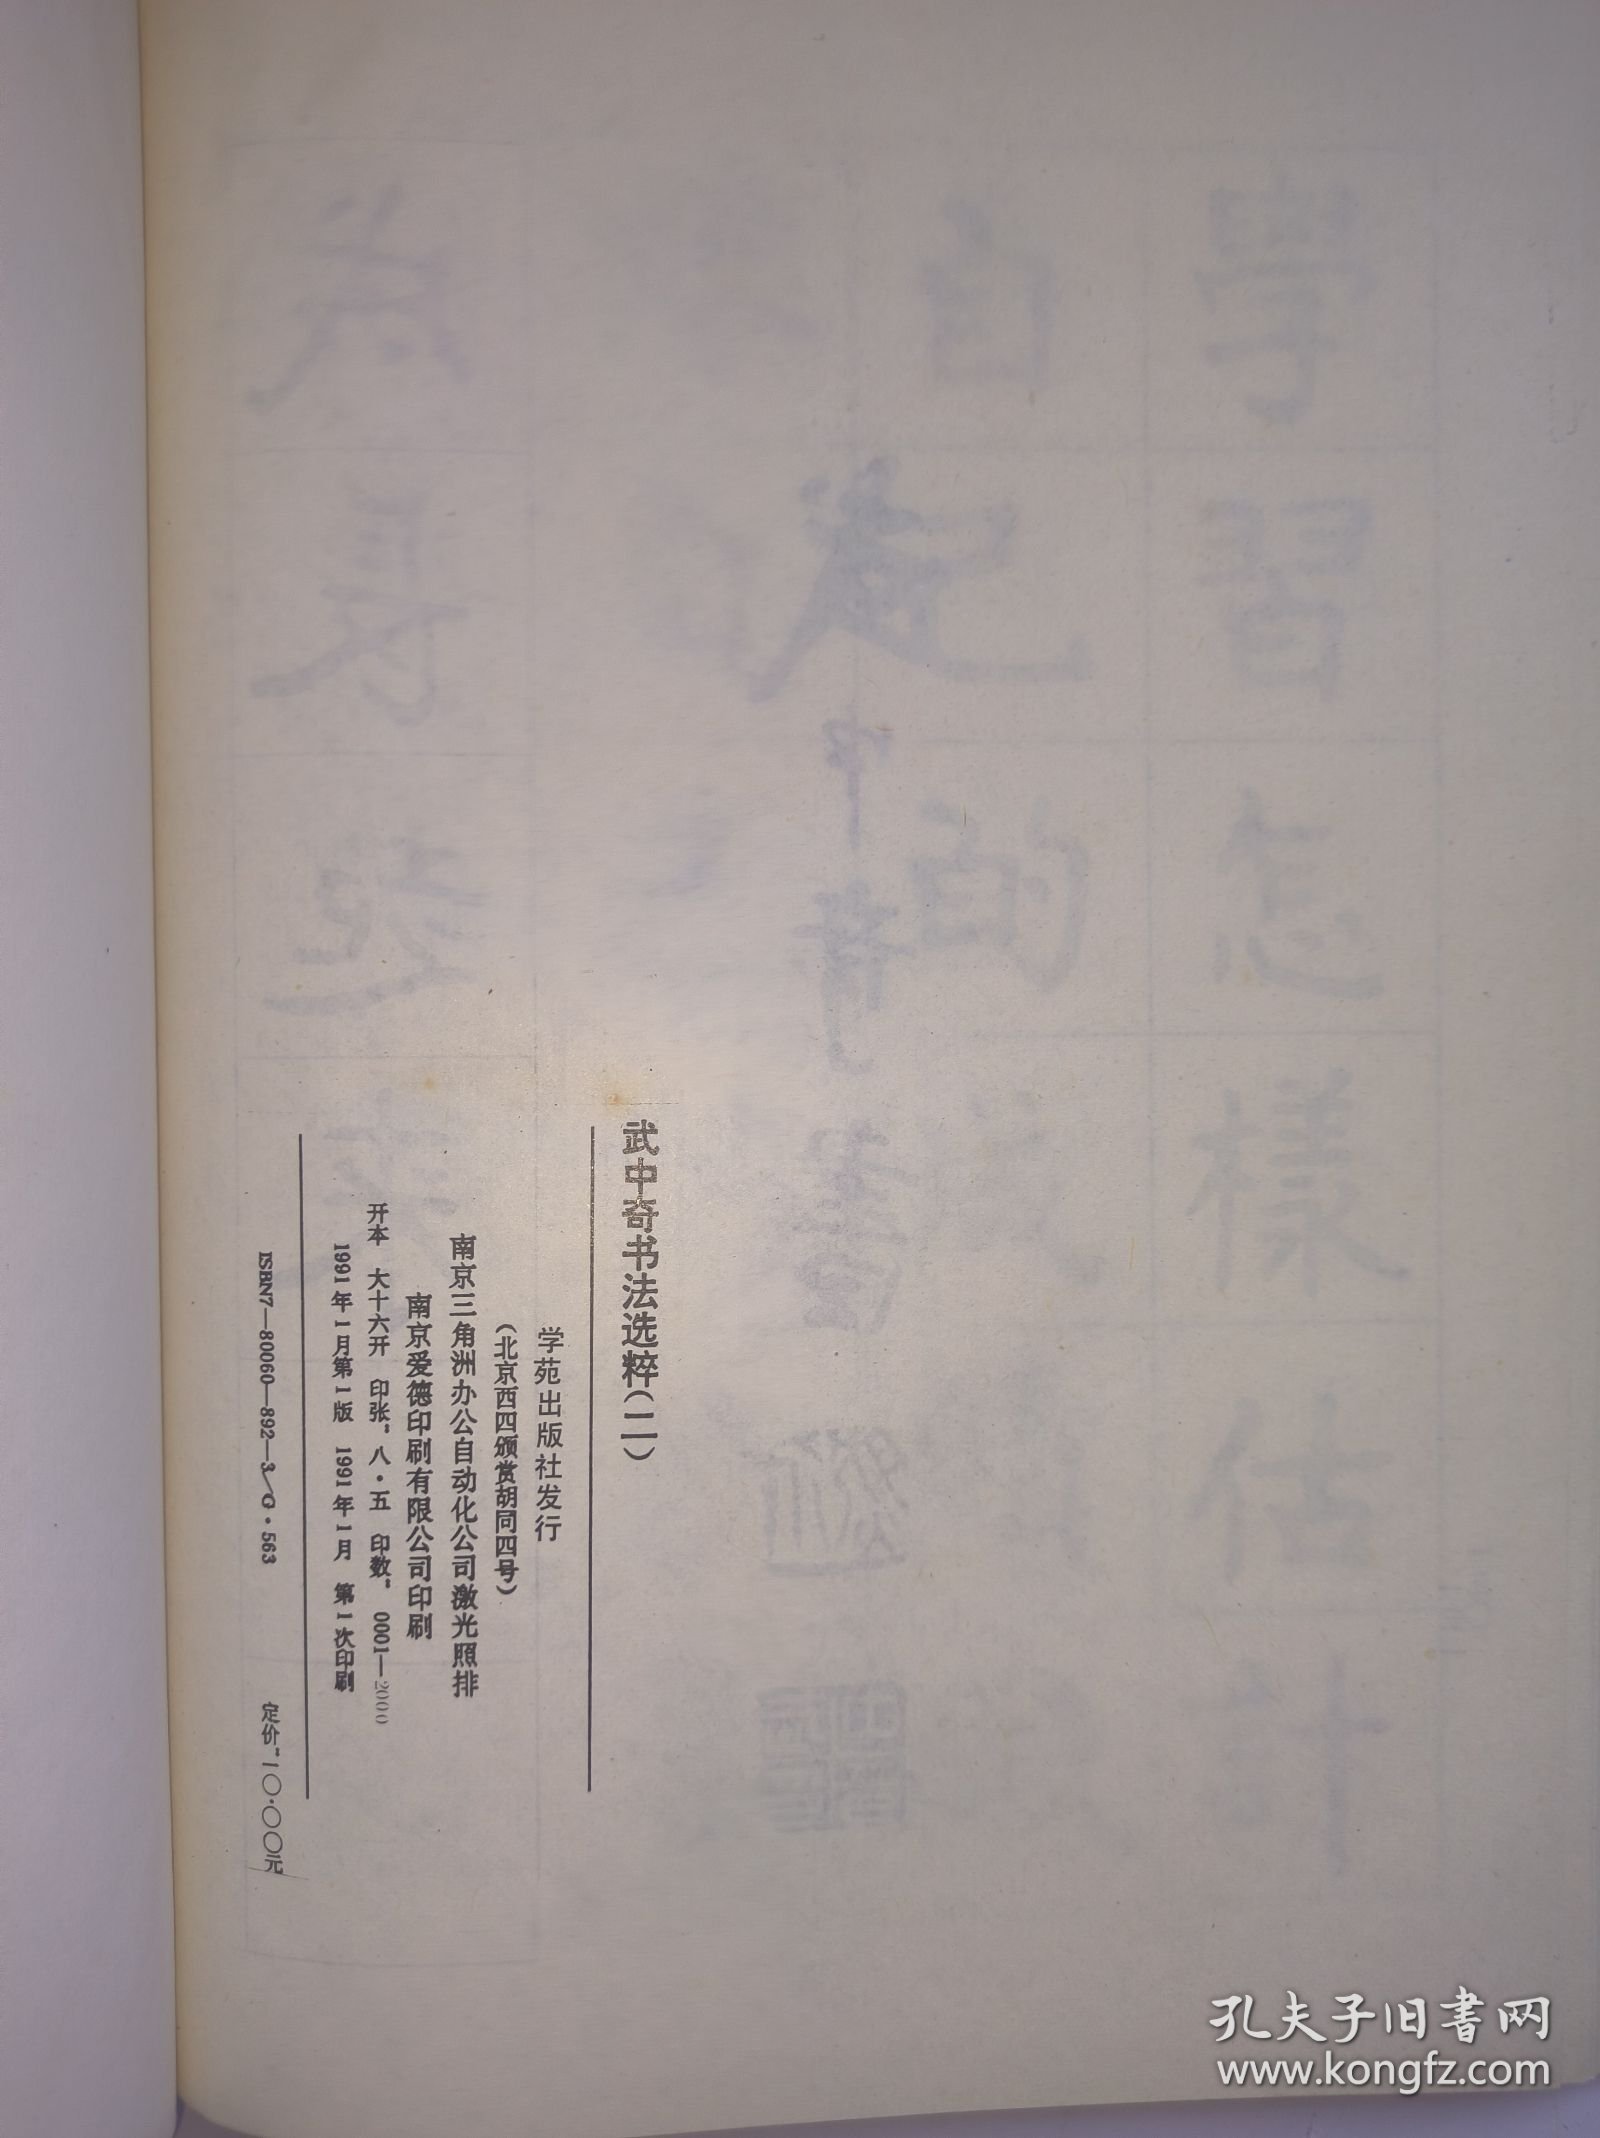 武中奇书法选粹(二)
学苑出版社发行
(北京西四颁赏胡同四号)
南京三角洲办公自动化公司激光照排
南京爱德印刷有限公司印刷
开本 大十六开 印张:八·五 印数: 0001—2000
1991年1月第1版 1991年1月 第1次印刷
ISBN7—80060—892—3/G·563 定价:一〇·〇〇元
孔夫子旧书网
www.kongfz.com